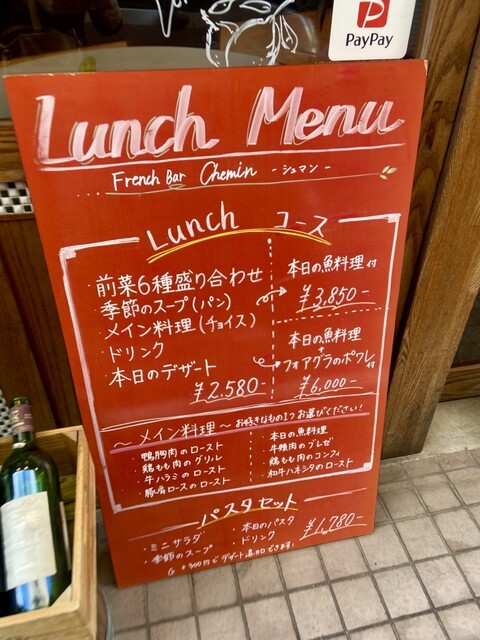 PayPay
Lunch Menu
French Bar Chemin -シュマン-
Lunch コース
・前菜6種盛り合わせ
・季節のスープ(パン)
・メイン料理(チョイス)
・ドリンク
・本日のデザート
¥2.580-
本日の魚料理付
¥3,850-
本日の魚料理
+
フォアグラのポワレ付
¥6,000-
～メイン料理～ お好きなもの1つお選びください!
・鴨胸肉のロースト
・鶏もも肉のグリル
・牛ハラミのロースト
・豚肩ロースのロースト
・本日の魚料理
・牛頬肉のブレゼ
・鶏もも肉のコンフィ
・和牛ハネシタのロースト
パスタセット
・ミニサラダ
・季節のスープ
・本日のパスタ
・ドリンク
¥1,780-
+300円でデザート追加できます!